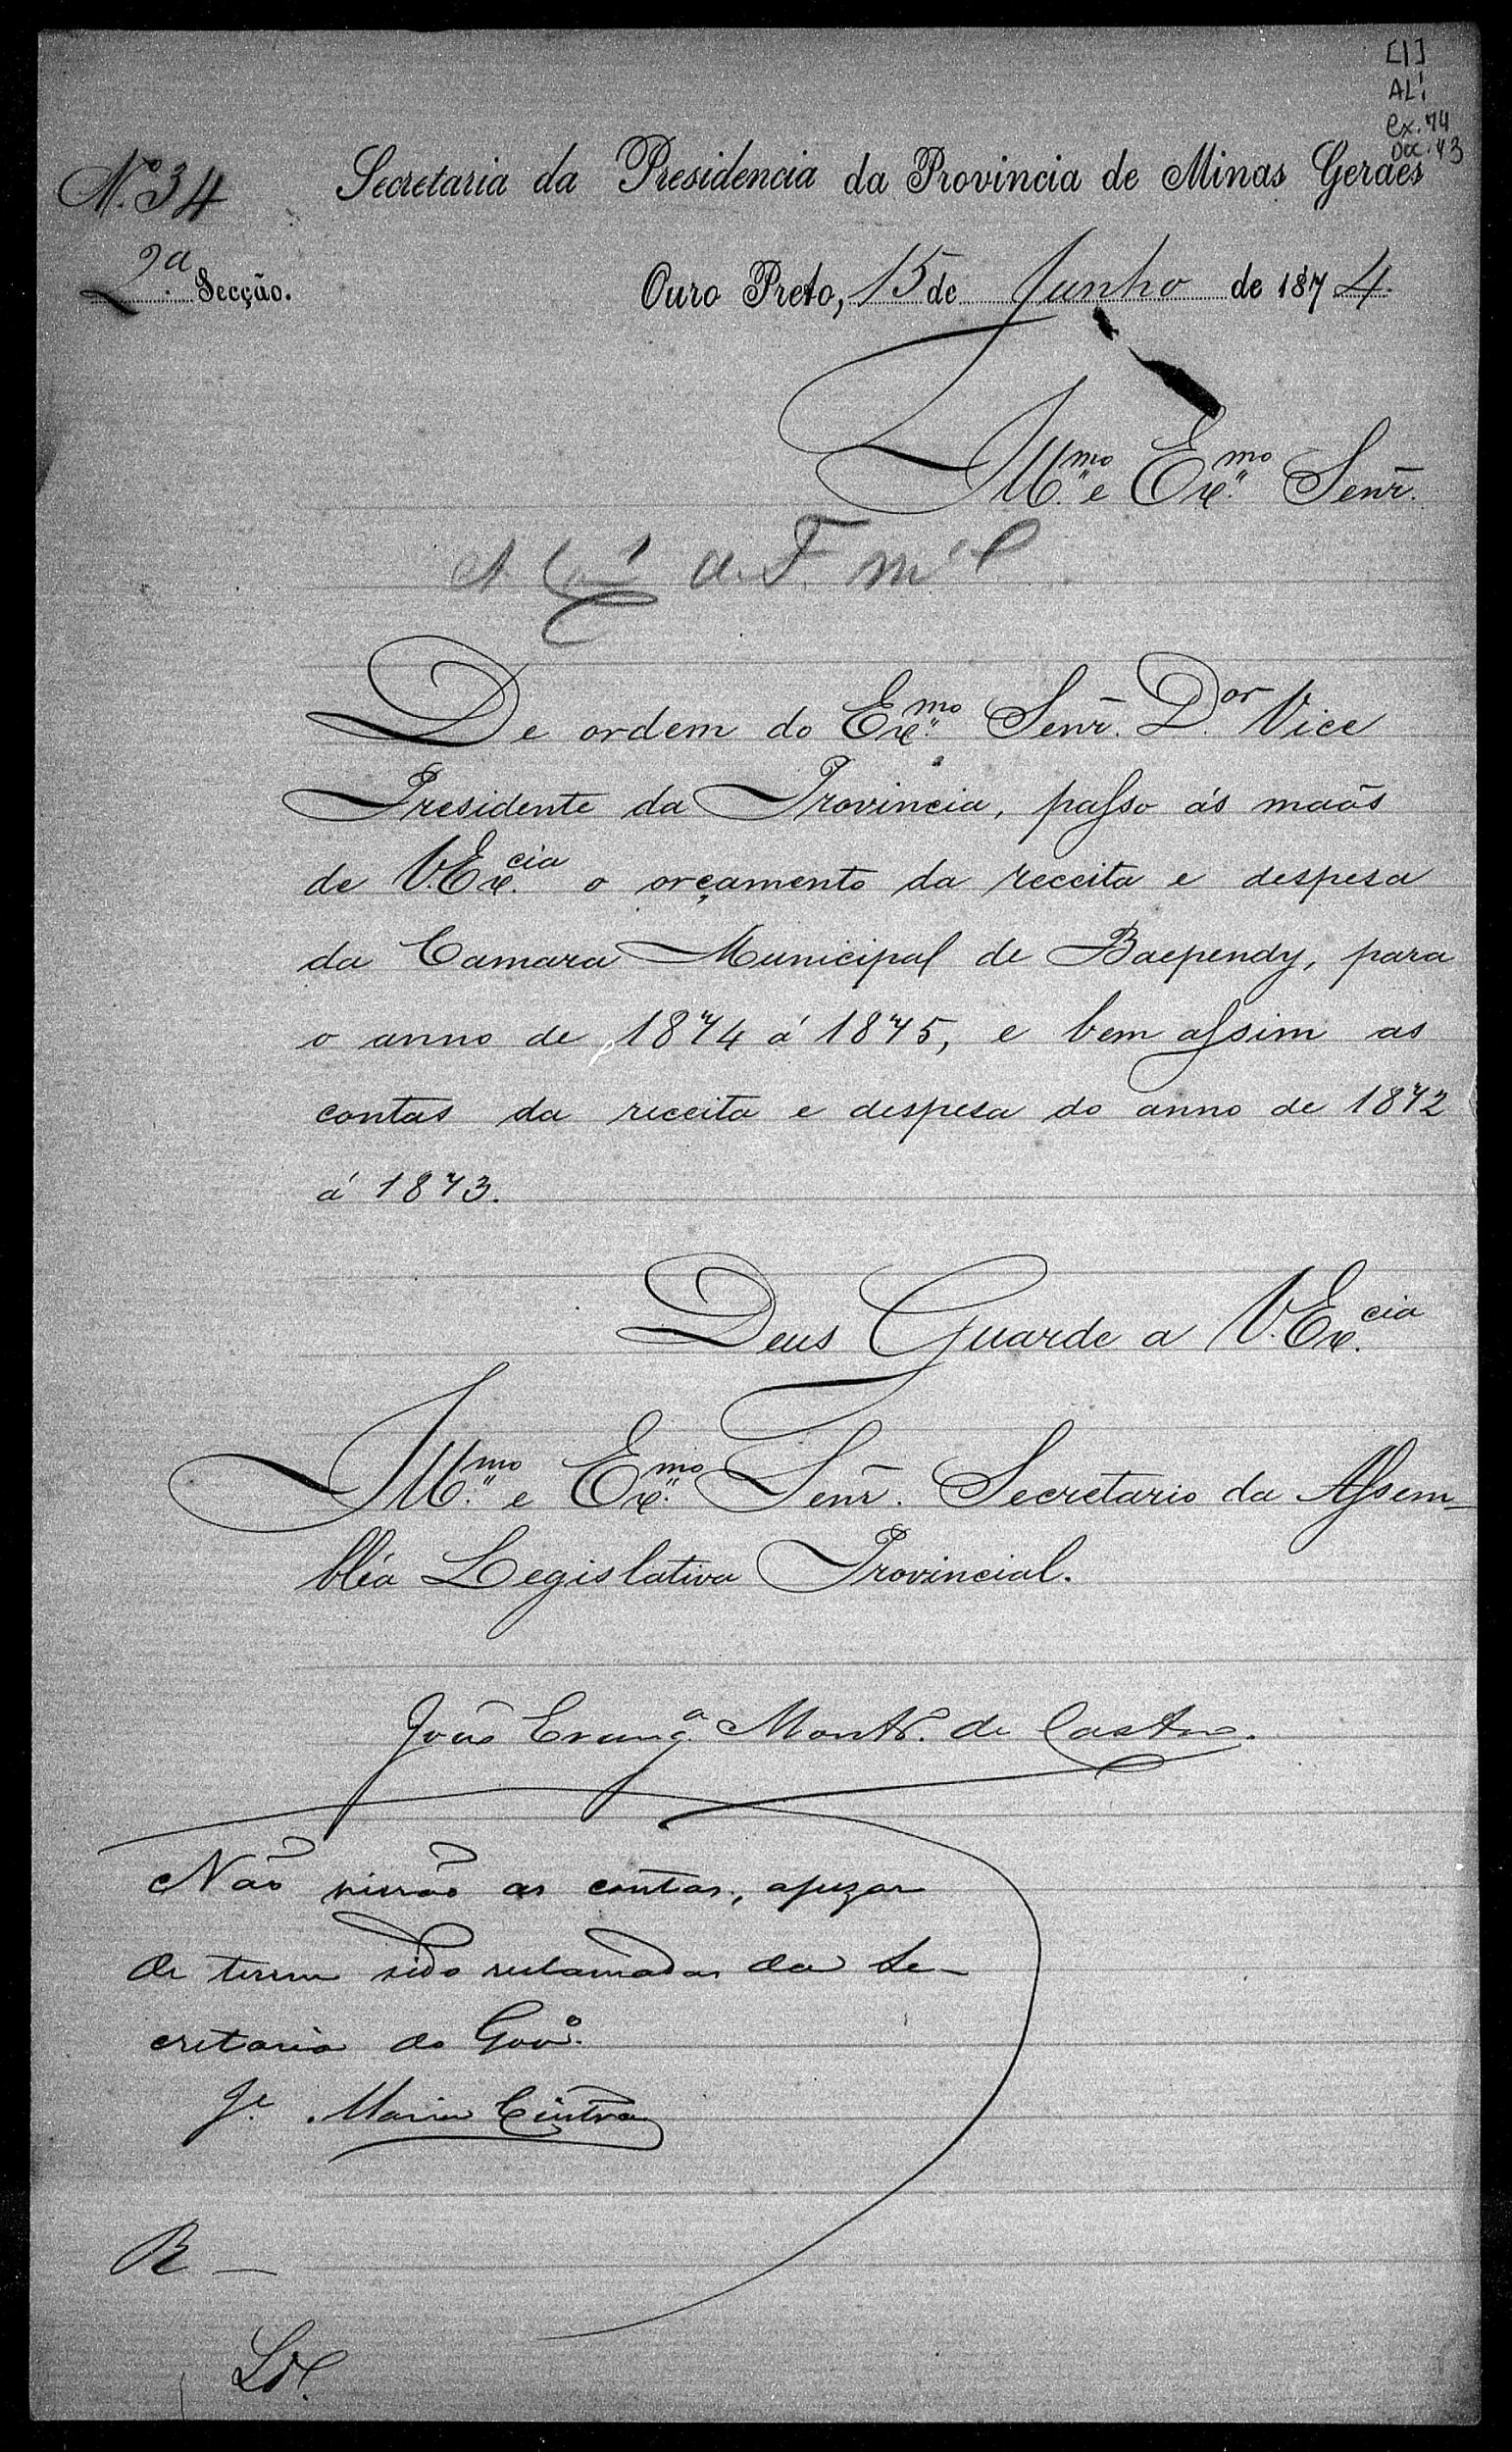 [1]
AL!
Cx. 74
Doc. 43
Nº 34
Secretaria da Presidencia da Provincia de Minas Geraes
2ª Secção.
Ouro Preto, 15 de Junho de 1874.
Illmo. e Exmo. Senr.
A F. M.
De ordem do Exmo. Senr. Dor. Vice
Presidente da Provincia, passo ás maõs
de V. Excia. o orçamento da receita e despesa
da Camara Municipal de Baependy, para
o anno de 1874 á 1875, e bem assim as
contas da receita e despesa do anno de 1872
á 1873.
Deus Guarde a V. Excia.
Illmo. e Exmo. Senr. Secretario da Assem-
bléa Legislativa Provincial.
João Evang.ª Montr. de Castro.
Não virão as contas, apezar
de terem sido reclamadas da Se-
cretaria do Govº.
Je. Maria Cintra
R —